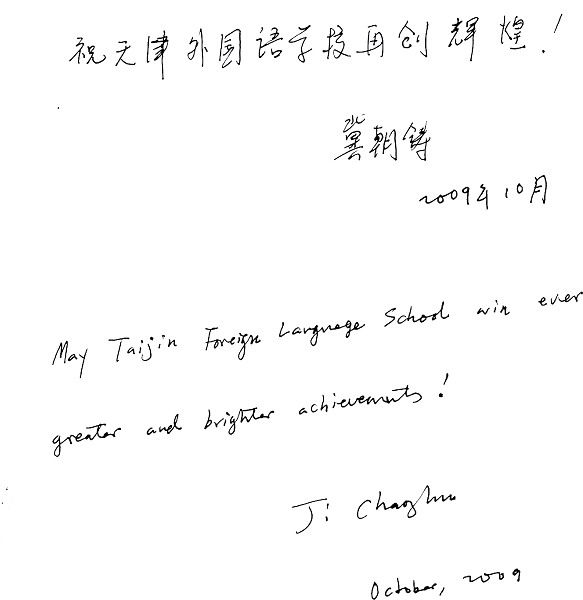 祝天津外国语学校再创辉煌！
冀朝铸
2009年10月
May Taijin Foreign Language School win ever
greater and brighter achievements!
Ji Chaozhu
October, 2009